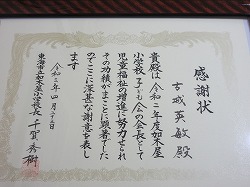 感謝状
古城英敏殿
貴殿は令和二年度加木屋
小学校子ども会の会長として
児童福祉の増進に努力せられ
その功績がまことに顕著でした
のでここに深甚な謝意を表し
ます
令和三年四月二十五日
東海市立加木屋小学校長 千賀秀樹